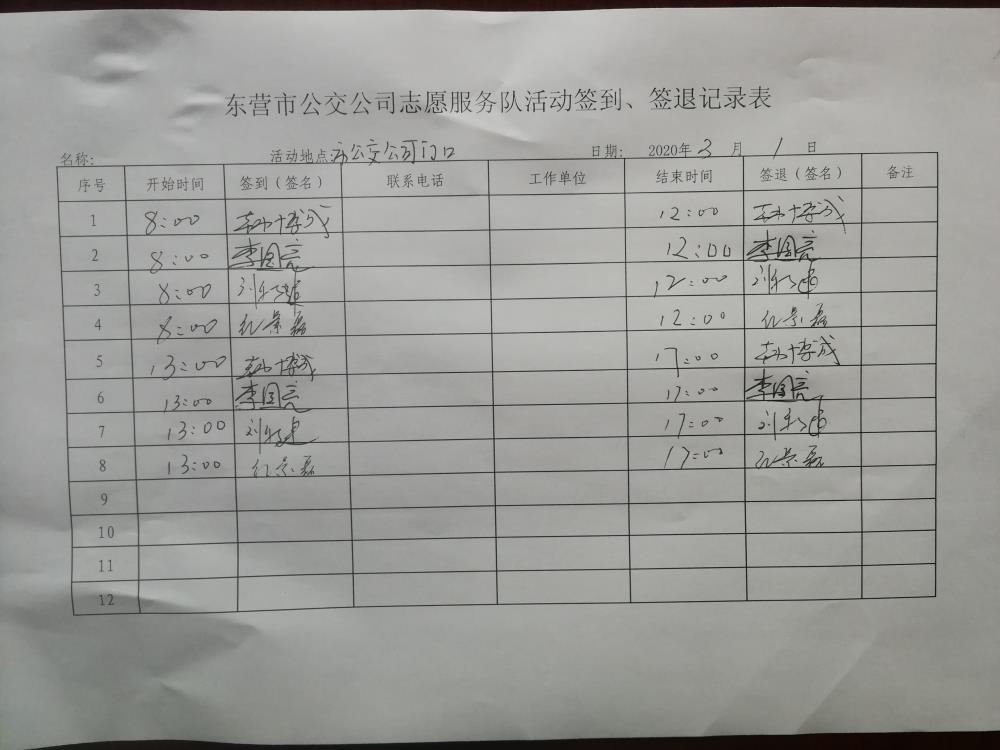 东营市公交公司志愿服务队活动签到、签退记录表
名称: 活动地点:市公交公司门口 日期: 2020年3月1日
序号 开始时间 签到（签名） 联系电话 工作单位 结束时间 签退（签名） 备注
1 8:00 12:00
2 8:00 李国亮 12:00 李国亮
3 8:00 12:00
4 8:00 纪景磊 12:00 纪景磊
5 13:00 17:00
6 13:00 李国亮 17:00 李国亮
7 13:00 17:00
8 13:00 纪景磊 17:00 纪景磊
9
10
11
12